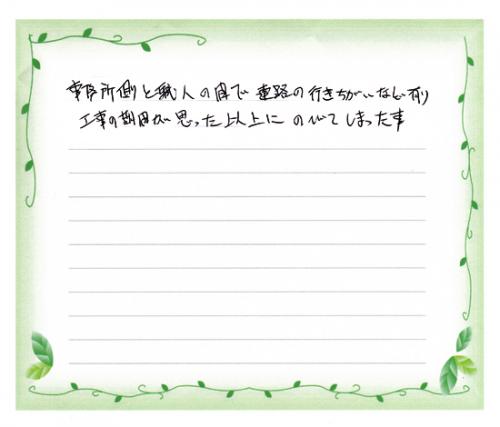 事務所側と職人の間で連絡の行きちがいなど有り
工事の期間が思った以上にのびてしまった事